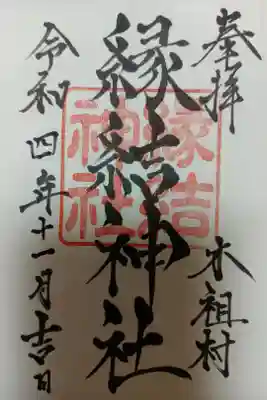 奉拝
木祖村
縁結神社
縁結神社
令和四年十一月吉日